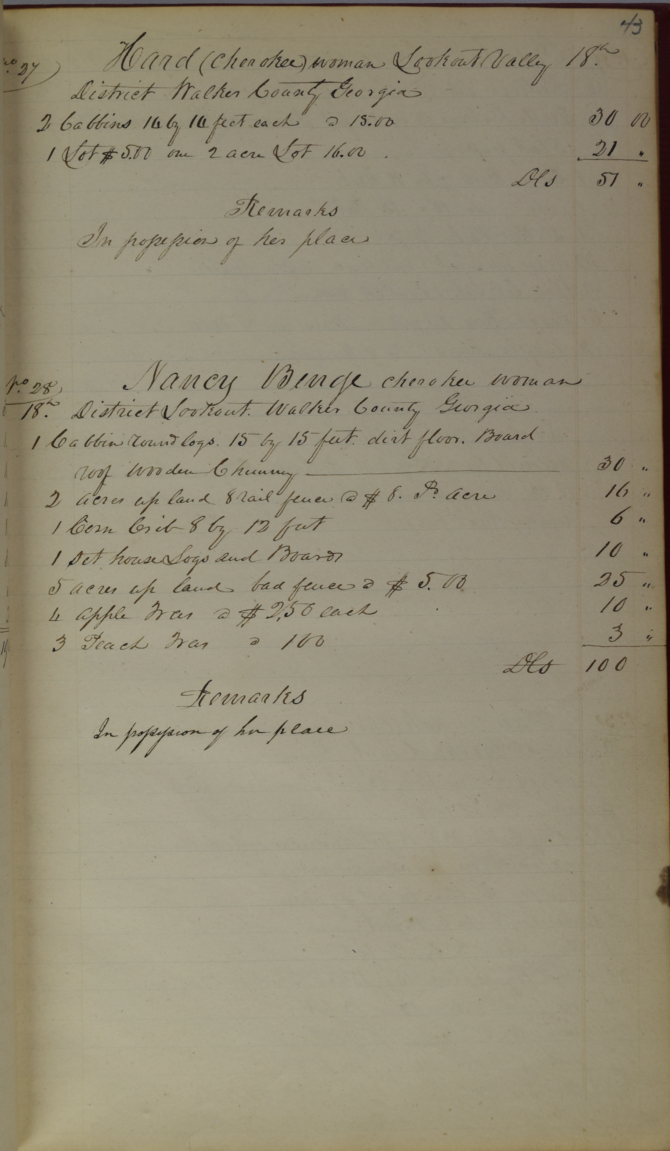 43
No 27) Hard (Cherokee) woman Lookout Valley 18th
District Walker County Georgia
2 Cabbins 16 by 16 feet each @ 15.00 30 00
1 Lot $5.00 one 2 acre Lot 16.00 21 "
Dls 51 "
Remarks
In possession of her place
No 28) Nancy Benge cherokee woman
18th District Lookout Walker County Georgia
1 Cabbin round logs. 15 by 15 feet. dirt floor. Board
roof wooden Chimney 30 "
2 acres up land 8 rail fence @ $8. Pr acre 16 "
1 Corn Crib 8 by 12 feet 6 "
1 house Logs and Boards 10 "
5 acres up land bad fence @ $5.00 25 "
4 apple Trees @ $2,50 each 10 "
3 Peach Trees @ 100 3 "
Dls 100
Remarks
In possession of her place